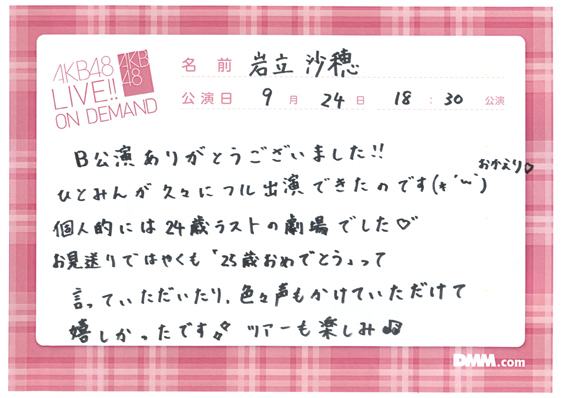 AKB48
LIVE!!
ON DEMAND
AKB
48
名前 岩立 沙穂
公演日 9月 24日 18:30 公演
B公演ありがとうございました!!
おかえり♡
ひとみんが久々にフル出演できたのです(*´︶`)
個人的には24歳ラストの劇場でした♡
お見送りではやくも「25歳おめでとう」って
言っていただいたり、色々声もかけていただけて
嬉しかったです ツアーも楽しみ♫
DMM.com